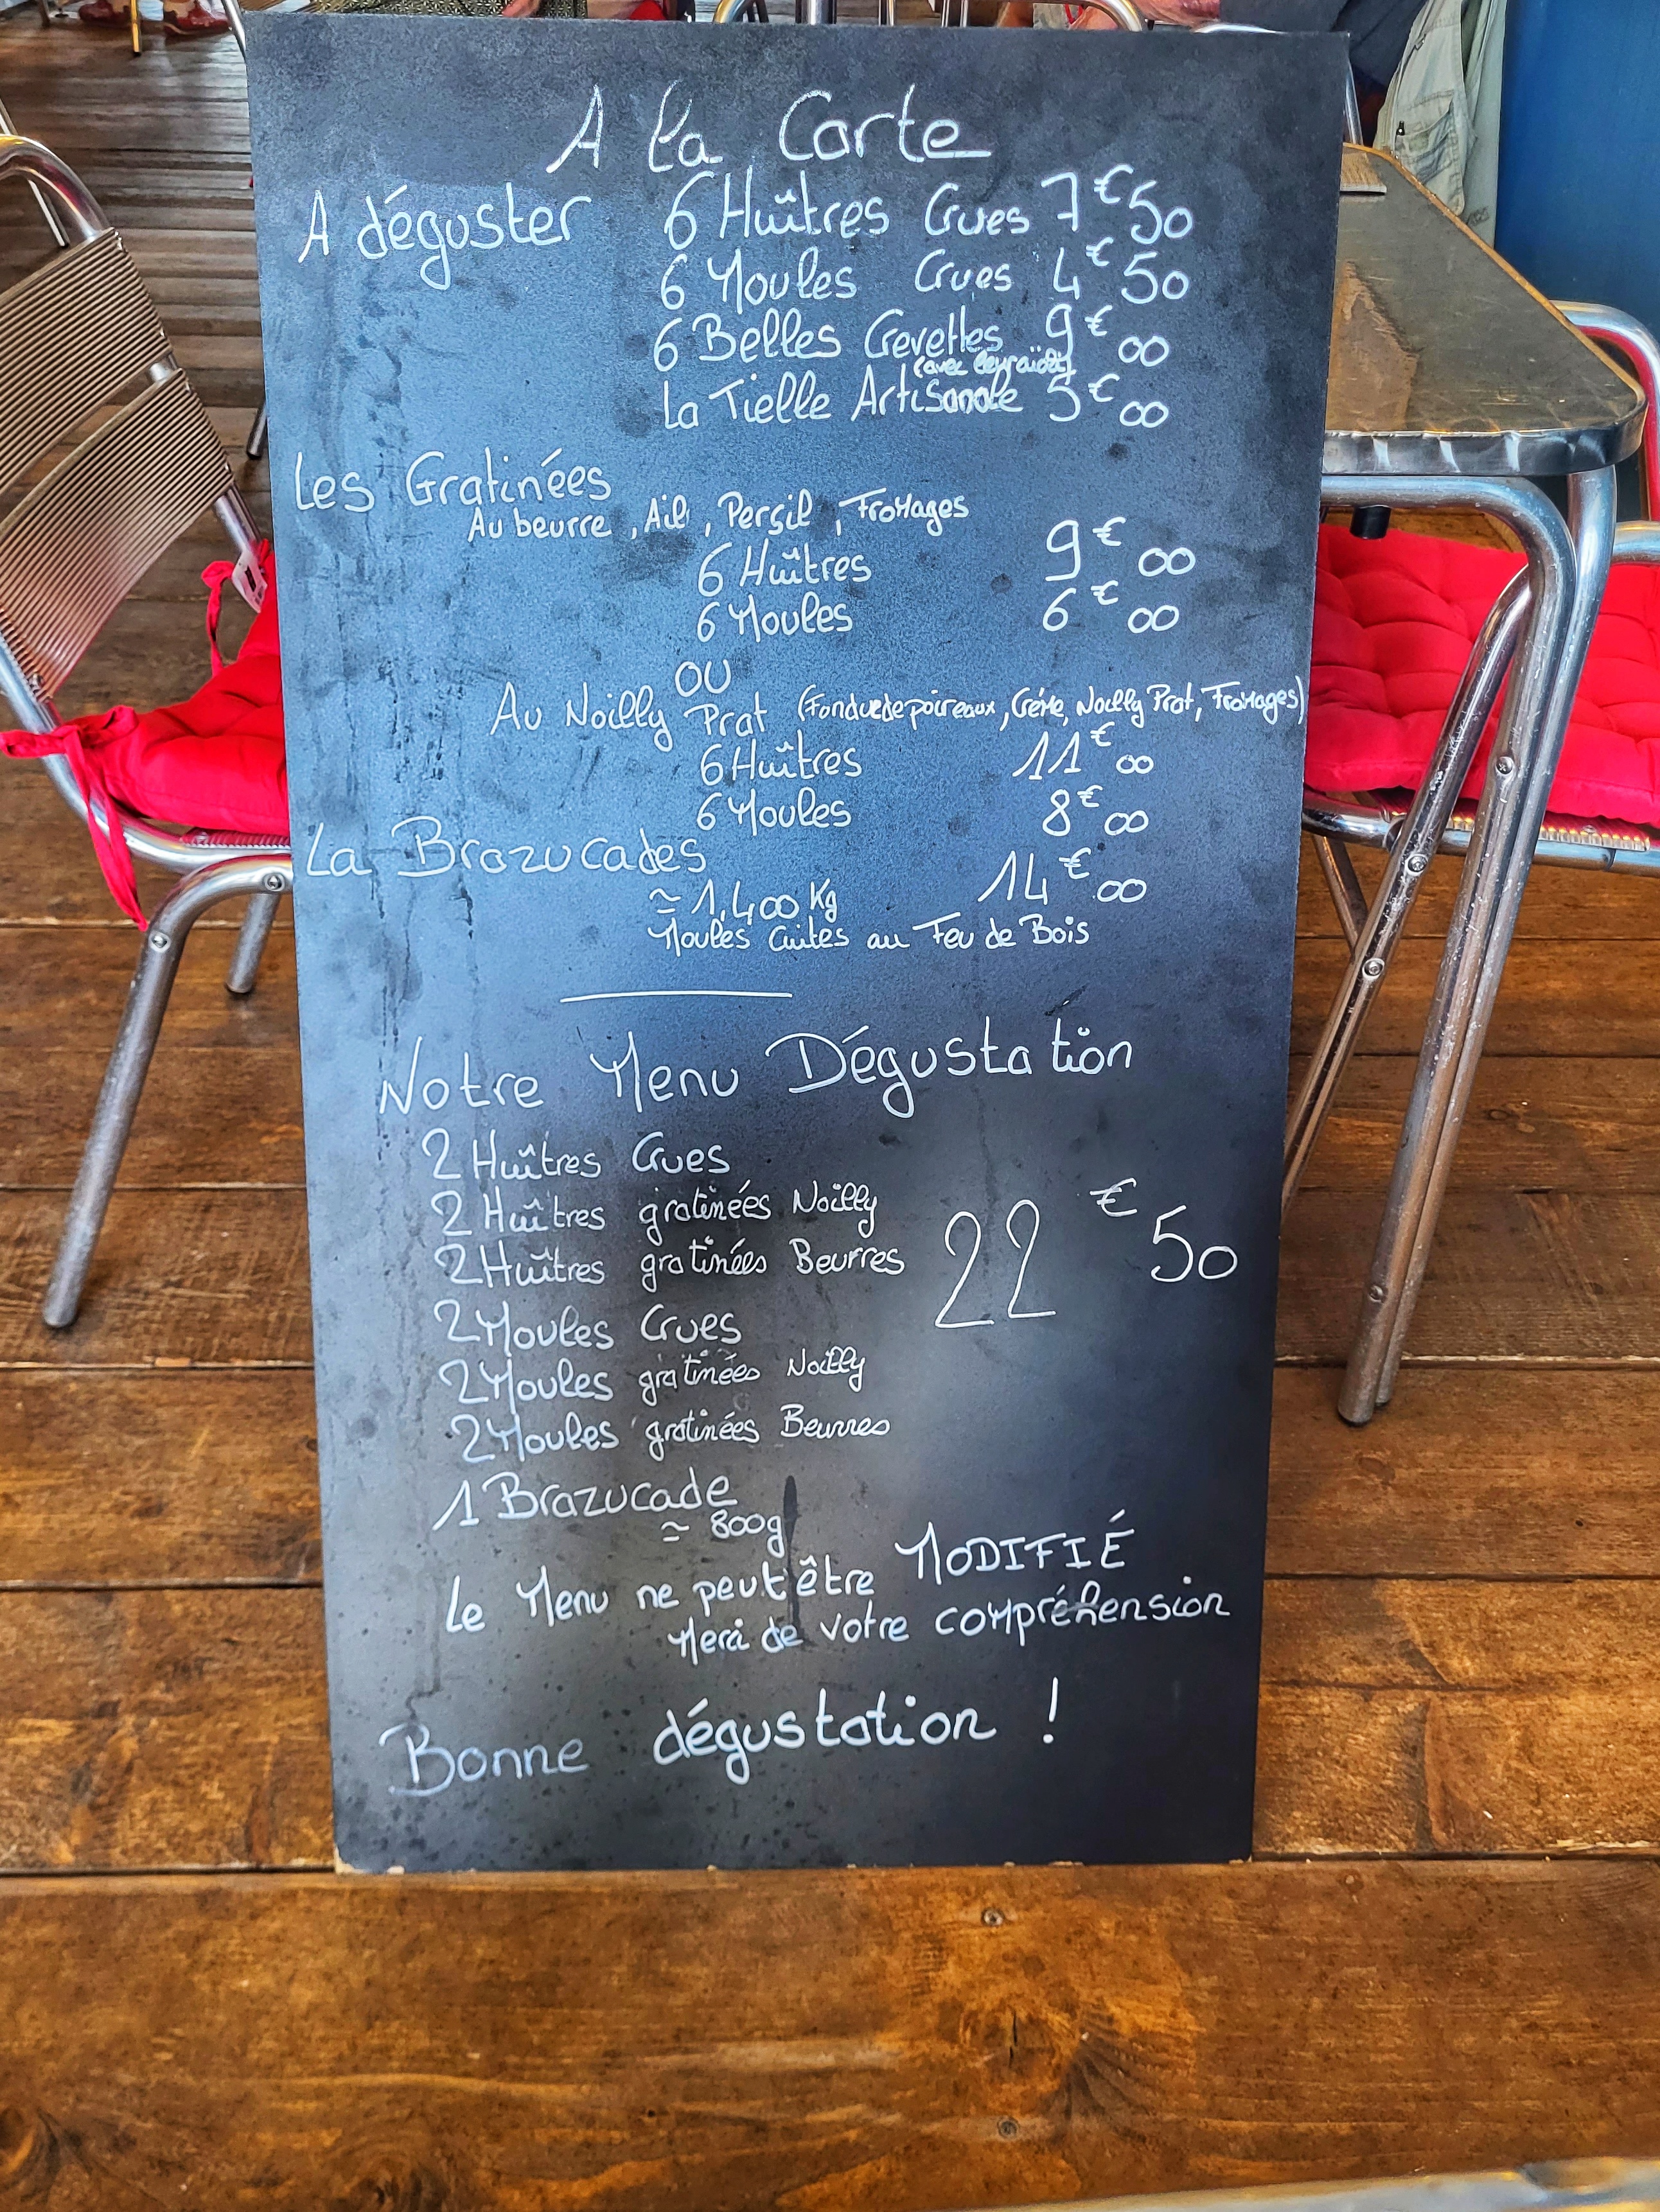 A la Carte
A déguster 6 Huîtres Crues 7€50
6 Moules Crues 4€50
6 Belles Crevettes 9€00
(avec
La Tielle Artisanale 5€00
Les Gratinées
Au beurre, Ail, Persil, Fromages
6 Huîtres 9€00
6 Moules 6€00
OU
Au Noilly Prat (Fondue de poireaux, Crème, Noilly Prat, Fromages)
6 Huîtres 11€00
6 Moules 8€00
La Brazucades
≃ 1,400 Kg 14€00
Moules Cuites au Feu de Bois
Notre Menu Dégustation
2 Huîtres Crues
2 Huîtres gratinées Noilly
2 Huîtres gratinées Beurres 22€50
2 Moules Crues
2 Moules gratinées Noilly
2 Moules gratinées Beurres
1 Brazucade
≃ 800g
Le Menu ne peut être MODIFIÉ
Merci de votre compréhension
Bonne dégustation !